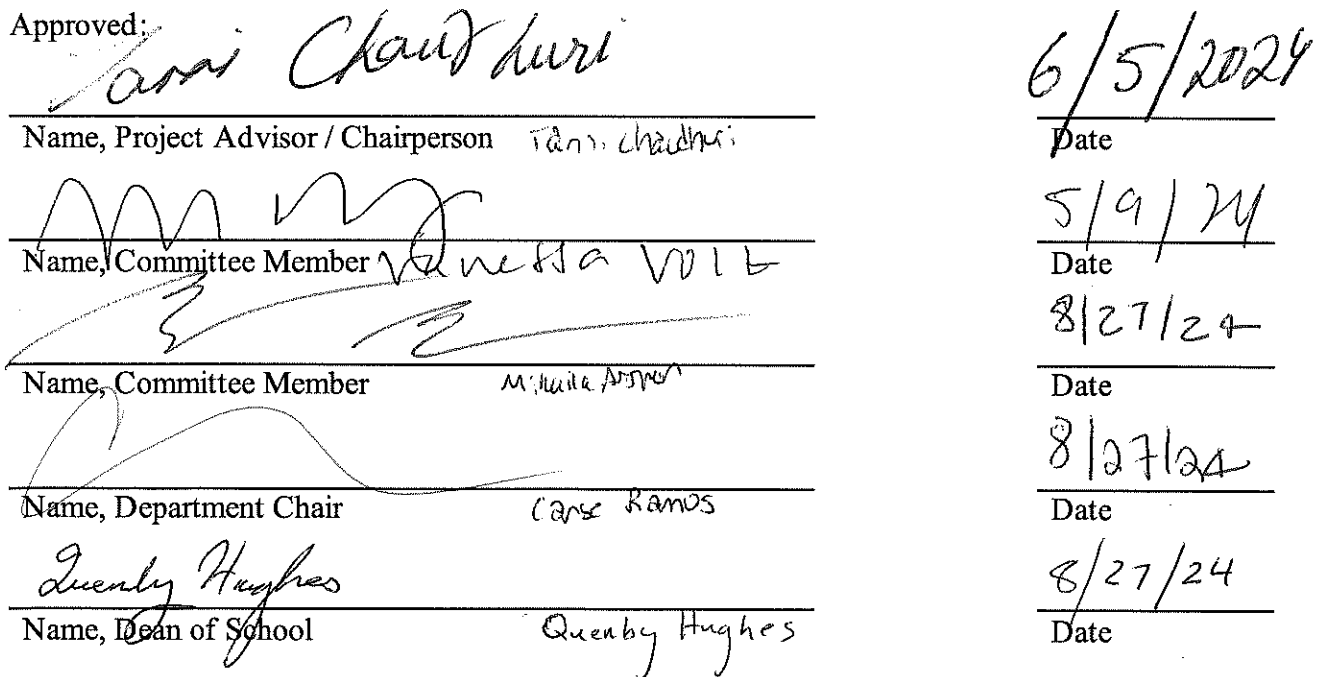 Approved:
Chaudhuri 6/5/2024
Name, Project Advisor / Chairperson Tanni Chaudhuri Date
5/9/24
Name, Committee Member Vanessa Volz Date
8/27/24
Name, Committee Member Date
8/27/24
Name, Department Chair Carse Ramos Date
Quenby Hughes 8/27/24
Name, Dean of School Quenby Hughes Date